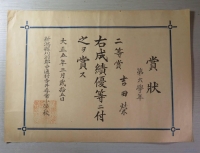 賞状
第六學年
二等賞 吉田榮
右成績優等ニ付
之ヲ賞ス
大正五年三月貮拾五日